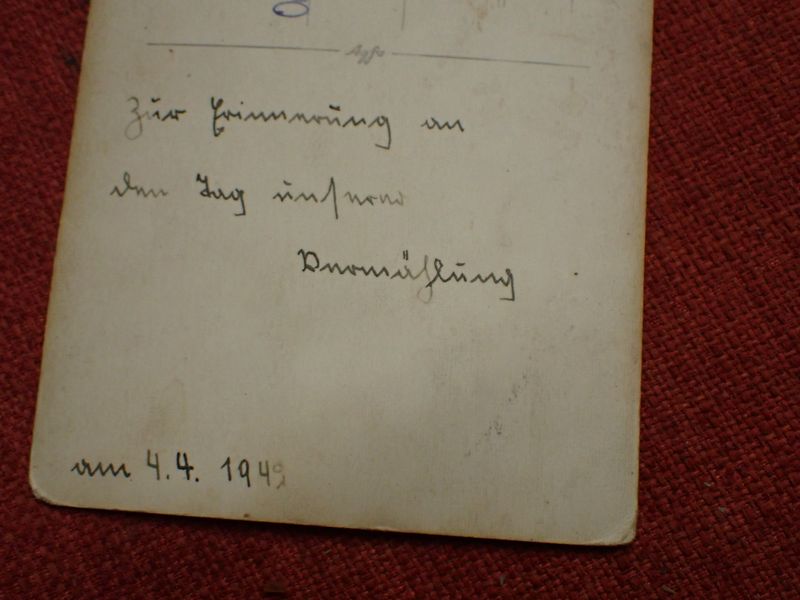 Zur Erinnerung an
den Tag unserer
Vermählung
am 4.4. 1942